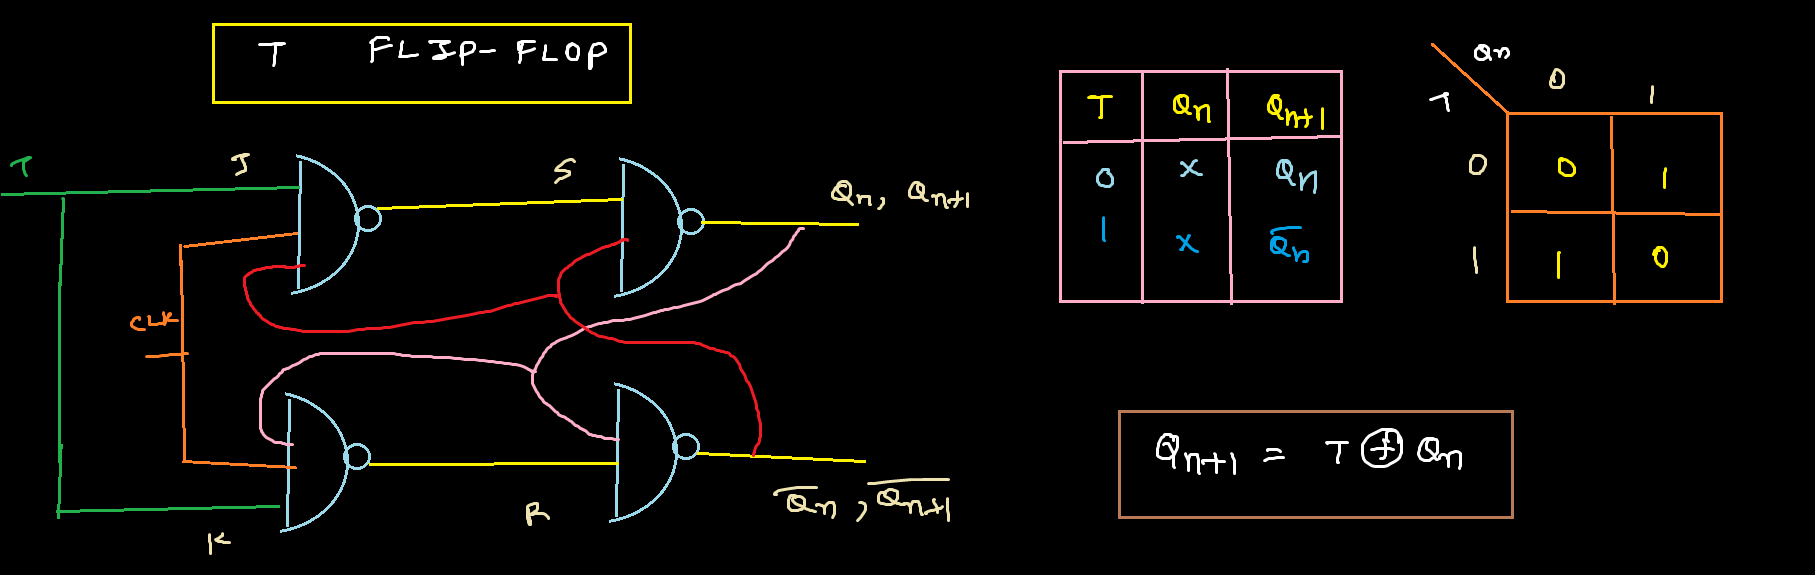 T FLIP-FLOP
T
J
S
Qn, Qn+1
CLK
K
R
Q̅n̅, Q̅n̅+̅1̅
T Qn Qn+1
0 x Qn
1 x Q̅n
Qn
T
0 1
0 0 1
1 1 0
Qn+1 = T ⊕ Qn